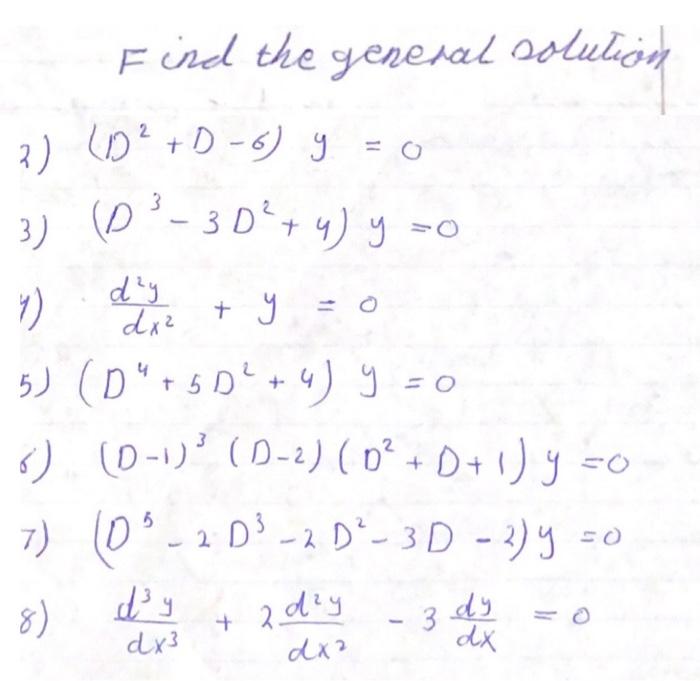 Find the general solution
2) (D² + D - 6) y = 0
3) (D³ - 3D² + 4) y = 0
4) d²y/dx² + y = 0
5) (D⁴ + 5D² + 4) y = 0
6) (D-1)³ (D-2) (D² + D + 1) y = 0
7) (D⁵ - 2D³ - 2D² - 3D - 2) y = 0
8) d³y/dx³ + 2 d²y/dx² - 3 dy/dx = 0